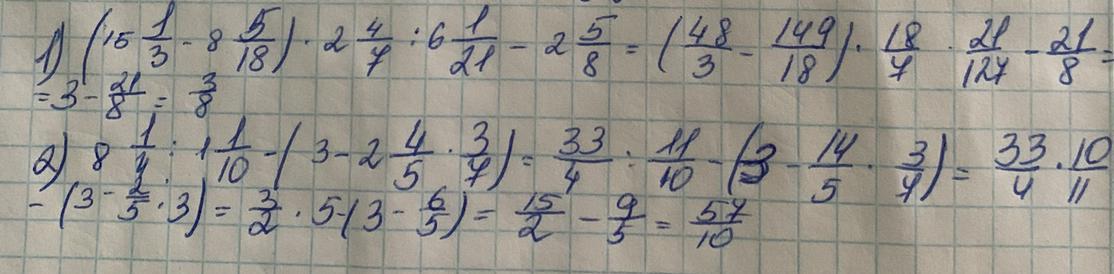 1) (15 1/3 - 8 5/18) · 2 4/7 : 6 1/21 - 2 5/8 = (48/3 - 149/18) · 18/7 · 21/127 - 21/8 =
= 3 - 21/8 = 3/8
2) 8 1/4 : 1 1/10 - (3 - 2 4/5 · 3/7) = 33/4 : 11/10 - (3 - 14/5 · 3/7) = 33/4 · 10/11
- (3 - 2/5 · 3) = 3/2 · 5 - (3 - 6/5) = 15/2 - 9/5 = 57/10